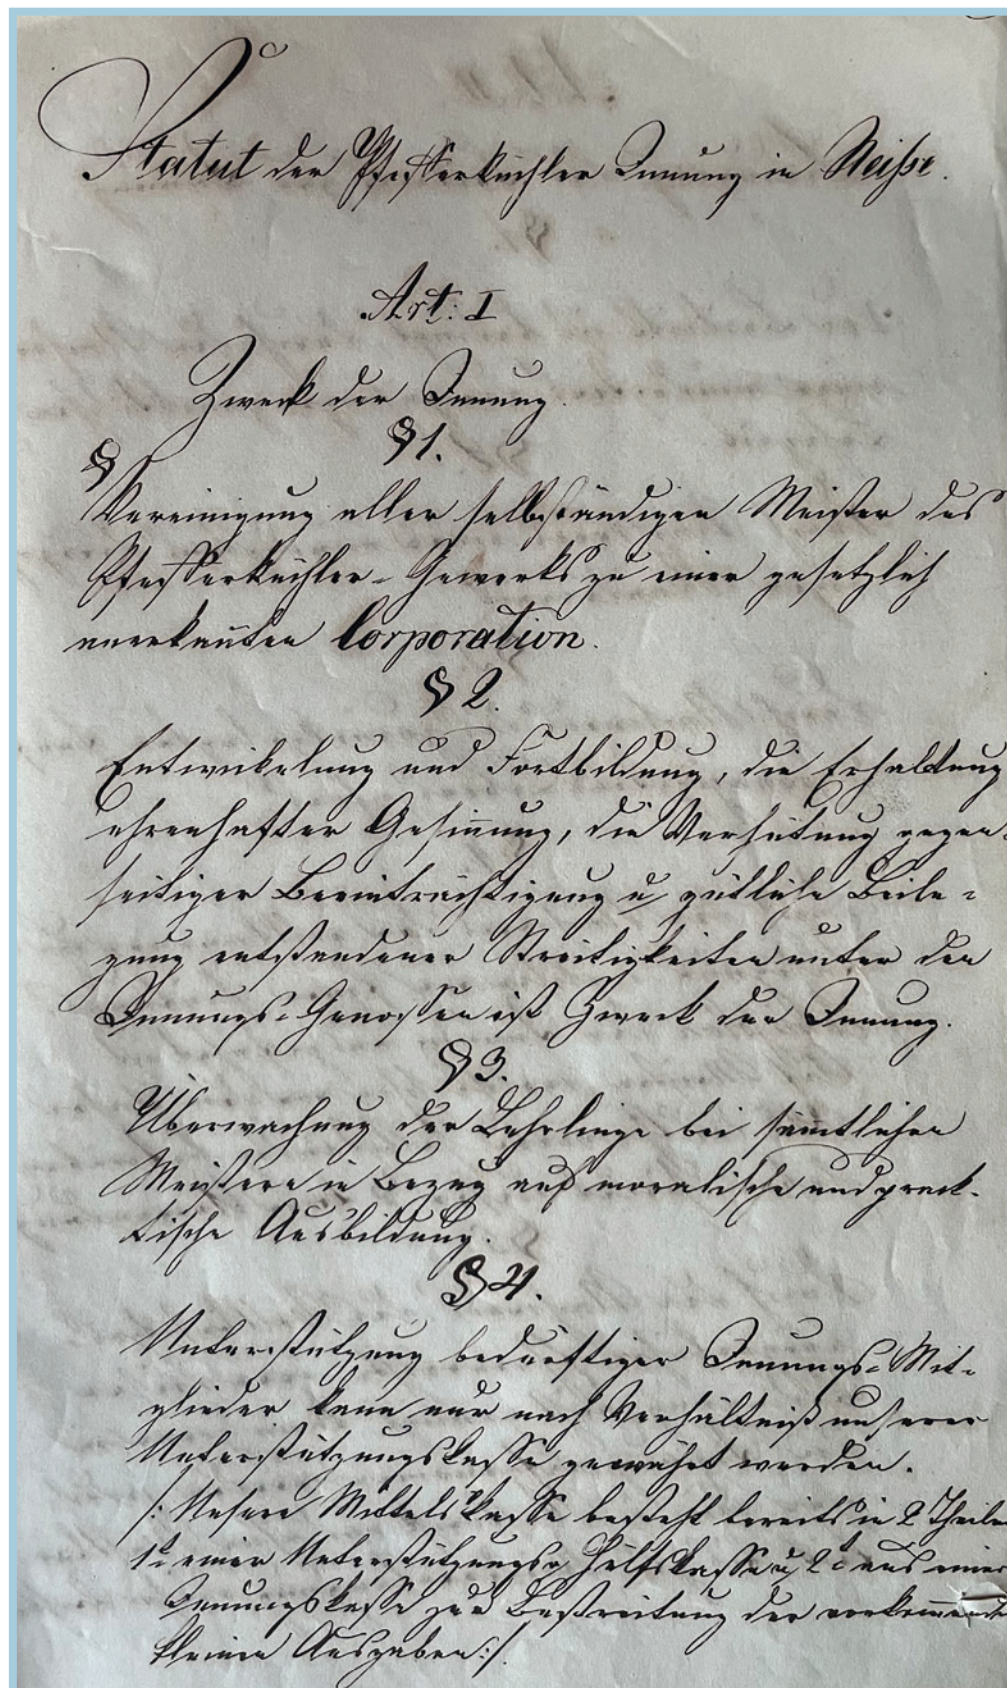 Statut der Pfefferküchler Innung in Neisse.
Art: I
Zweck der Innung.
§ 1.
§
Vereinigung aller selbständigen Meister des
Pfefferküchler-Gewerks zu einer gesetzlich
anerkannten Corporation.
§ 2.
Entwickelung und Fortbildung, die Erhaltung
ehrenhafter Gesinnung, die Verhütung gegen-
seitiger Beeinträchtigung u gütliche Beile-
gung entstandener Streitigkeiten unter den
Innungs-Genossen ist Zweck der Innung.
§ 3.
Überwachung der Lehrlinge bei sämtlichen
Meistern in Bezug auf moralische und prack-
tische Ausbildung.
§ 4.
Unterstützung bedürftiger Innungs-Mit-
glieder kann nur nach Verhältniß unserer
Unterstützungskasse gewährt werden.
/: Unsere Mittelskasse besteht bereits in 2 Theilen
1t einer Unterstützungs u Hülfskasse u 2t aus einer
Innungskasse zur Bestreitung der vorkommenden
kleinen Ausgaben :/.